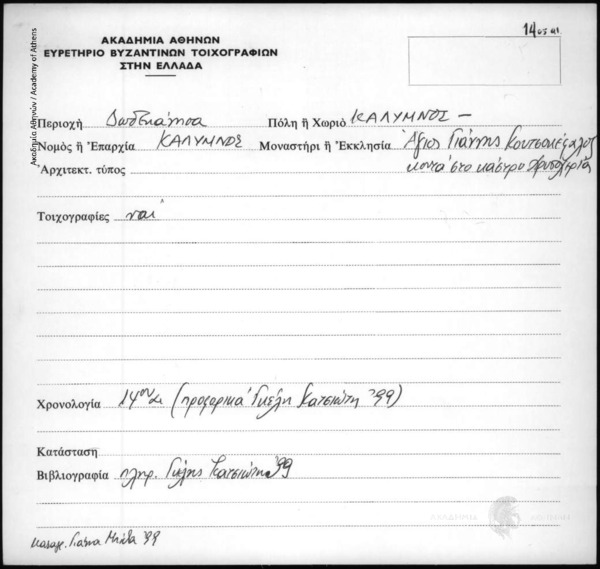 14ος αι.
ΑΚΑΔΗΜΙΑ ΑΘΗΝΩΝ
ΕΥΡΕΤΗΡΙΟ ΒΥΖΑΝΤΙΝΩΝ ΤΟΙΧΟΓΡΑΦΙΩΝ
ΣΤΗΝ ΕΛΛΑΔΑ
Ακαδημία Αθηνών / Academy of Athens
Περιοχή Δωδεκάνησα Πόλη ἤ Χωριό ΚΑΛΥΜΝΟΣ –
Νομός ἤ Ἐπαρχία ΚΑΛΥΜΝΟΣ Μοναστήρι ἤ Ἐκκλησία Άγιος Γιάννης Κουτσοκέφαλος
Ἀρχιτεκτ. τύπος κοντά στο κάστρο Χρυσοχεριάς
Τοιχογραφίες ναί
Χρονολογία 14ου αι (προφορικά Γκέλη Κατσιώτη '99)
Κατάσταση
Βιβλιογραφία πληρ. Γκέλης Κατσιώτη '99
ΑΚΑΔΗΜΙΑ ΑΘΗΝΩΝ
καταγρ. Γιάννα Μπίθα '99